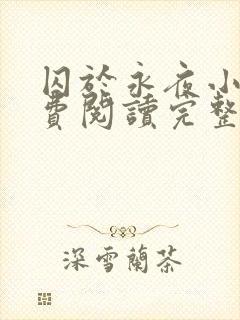 囚於永夜小
費閱讀完整
深雪蘭茶